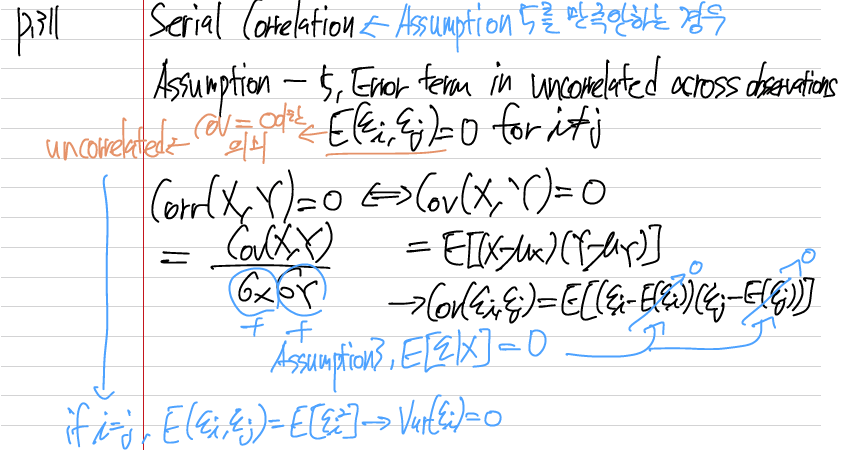 p.311 Serial Correlation ← Assumption 5를 만족안하는 경우
Assumption - 5, Error term in uncorrelated across observations
uncorrelated ← Cov = 0이란 의미 ← E(ε_i, ε_j) = 0 for i≠j
Corr(X, Y) = 0 ⟺ Cov(X, Y) = 0
= Cov(X,Y) / σ_X σ_Y = E[(X-μ_X)(Y-μ_Y)]
+ + → Cov(ε_i, ε_j) = E[(ε_i - E(ε_i))(ε_j - E(ε_j))] 0 0
Assumption3, E[ε|X] = 0
if i=j, E(ε_i, ε_j) = E[ε_i²] → Var(ε_i) = 0